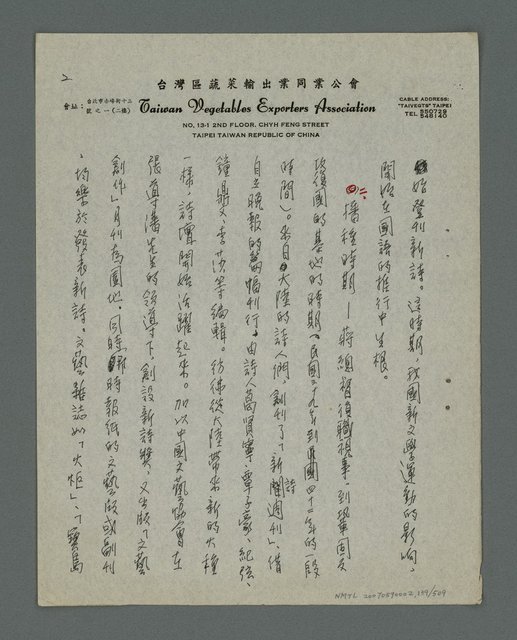 2
台灣區蔬菜輸出業同業公會
會址：台北市赤峰街十三號之一(二樓)
Taiwan Vegetables Exporters Association
CABLE ADDRESS:
"TAIVEGTS" TAIPEI
TEL. 550728
548140
NO. 13-1 2ND FLOOR, CHYH FENG STREET
TAIPEI TAIWAN REPUBLIC OF CHINA
始登刊新詩。這時期，我國新文學運動的影响，
開始在國語的推行中生根。
二、播種時期—蔣總習復職視事，到鞏固反
攻復國的基地的時期(民國三十九年到民國四十二年的段
時間)。來自大陸的詩人們，創刊了「新詩週刊」，借
自立晚報的篇幅刊行，由詩人葛賢寧、覃子豪、紀弦、
鍾鼎文、李莎等編輯。彷彿從大陸帶來新的火種
一樣，詩壇開始活躍起來。加以中國文藝協會在
張道藩先生的領導下，創設新詩獎，又出版「文藝
創作」月刊為園地，同時，時報紙的文藝版或副刊
，均樂於發表新詩。文藝雜誌如「火炬」，「寶島
NMTL 20070590002,139/509